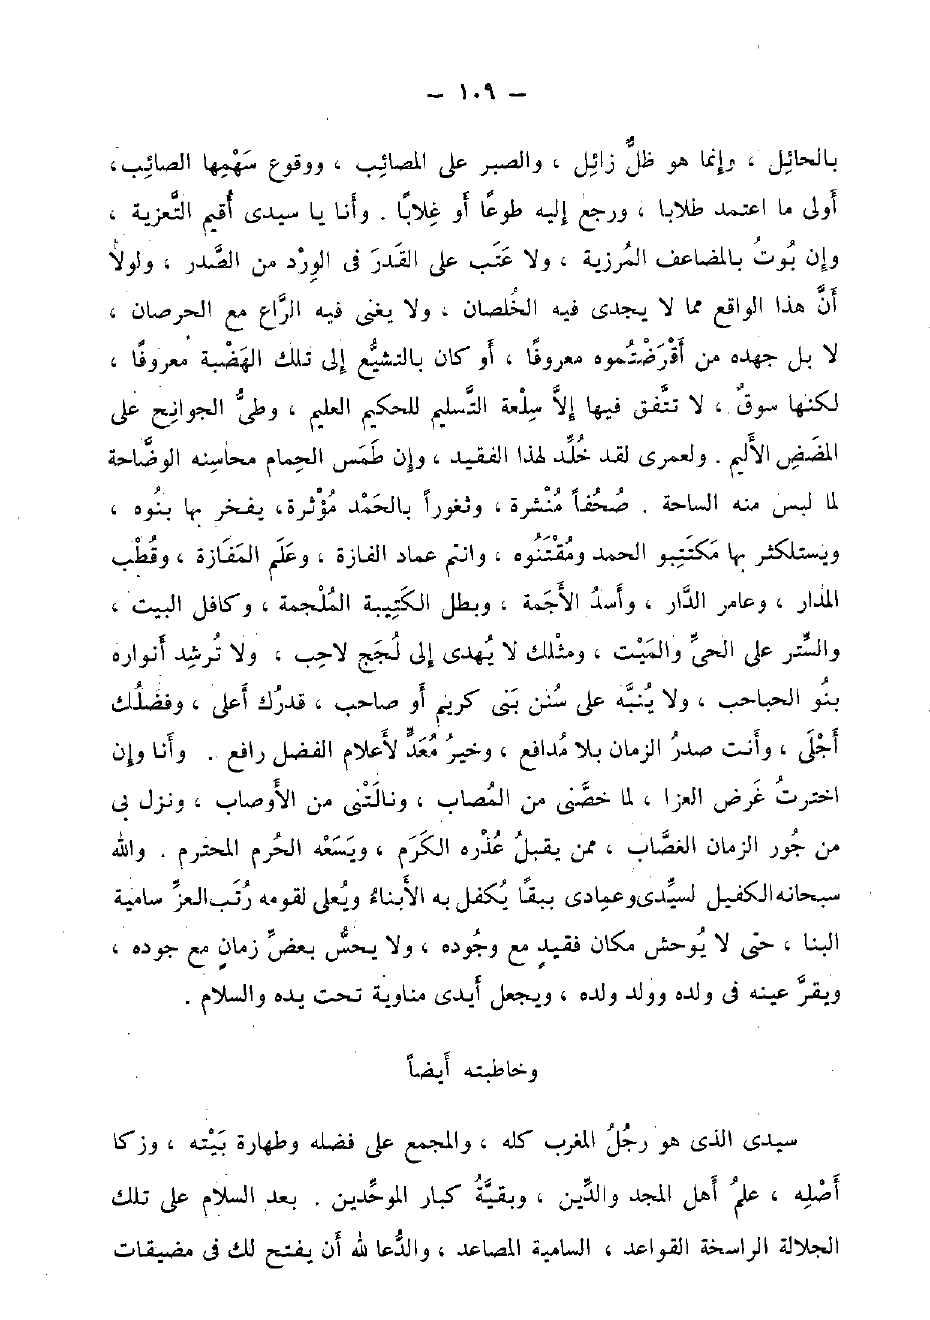 – ١٠٩ –
بالحائِل ، وإنما هو ظلٌّ زائِل ، والصبر على المصائِب ، ووقوع سَهْمِها الصائِب ،
أَولى ما اعتمد طلابا ، ورجع إليه طوعًا أَو غِلابًا . وأَنا يا سيدى أُقيم التَّعزية ،
وإن بُوتُ بالمضاعف المُرزية ، ولا عَتَب على القَدَر فى الوِرْد من الصَّدر ، ولولا
أَنَّ هذا الواقع مما لا يجدى فيه الخُلصان ، ولا يغنى فيه الرَّاع مع الحرصان ،
لا بل جهده من أَقْرَضْتُموه معروفًا ، أَو كان بالتشيُّع إلى تلك الهَضْبة معروفًا ،
لكنها سوقٌ ، لا تتَّفق فيها إلاَّ سِلْعة التَّسليم للحكيم العليم ، وطىُّ الجوانِح على
المَضَضِ الأَليم . ولعمرى لقد خُلِّد لهذا الفقيد ، وإن طَمَس الحِمام محاسِنه الوضَّاحة
لما لبس منه الساحة . صُحُفاً مُنْشرة ، وثغوراً بالحَمْد مُؤْثرة ، يفخر بها بنُوه ،
ويستلكثر بها مَكتَبِبو الحمد ومُقْتَنُوه ، وانتم عماد الفازة ، وعَلَم المَفَازة ، وقُطْب
المدار ، وعامر الدَّار ، وأَسدُ الأَجمة ، وبطل الكَتِيبة المُلْجمة ، وكافل البيت ،
والسِّتر على الحىِّ والمَيْت ، ومثلك لا يُهدى إلى لُجَج لاحِب ، ولا تُرشِد أَنواره
بنُو الحباحب ، ولا يُنبَّه على سُنن بَنى كريم أَو صاحب ، قدرُك أَعلى ، وفضلُك
أَجْلَى ، وأَنت صدرُ الزمان بلا مُدافع ، وخيرُ مُعَدٍّ لأَعلام الفضل رافع . وأَنا وإن
اخترتُ غَرَض العزا ، لما خصَّنى من المُصاب ، ونالَتْنى من الأَوصاب ، ونزل بى
من جُور الزمان الغصَّاب ، ممن يقبلُ عُذْره الكَرَم ، ويَسَعْه الحُرم المحترم . والله
سبحانه الكفيل لسيِّدى وعمادى ببقًا يُكفل به الأَبناءُ ويُعلى لقومه رُتَب العزِّ سامية
البنا ، حتى لا يُوحش مكان فقيدٍ مع وجُوده ، ولا يحسُّ بعضِّ زمانٍ مع جوده ،
ويقرَّ عينه فى ولده وولد ولده ، ويجعل أَيدى مناوية تحت يده والسلام .
وخاطبته أَيضاً
سيدى الذى هو رجُلُ المغرب كله ، والمجمع على فضله وطهارة بَيْته ، وزكا
أَصْلِه ، علمُ أَهل المجد والدِّين ، وبقيَّةُ كبار الموحِّدين . بعد السلام على تلك
الجلالة الراسخة القواعد ، السامية المصاعد ، والدُّعا لله أَن يفتح لك فى مضيقات